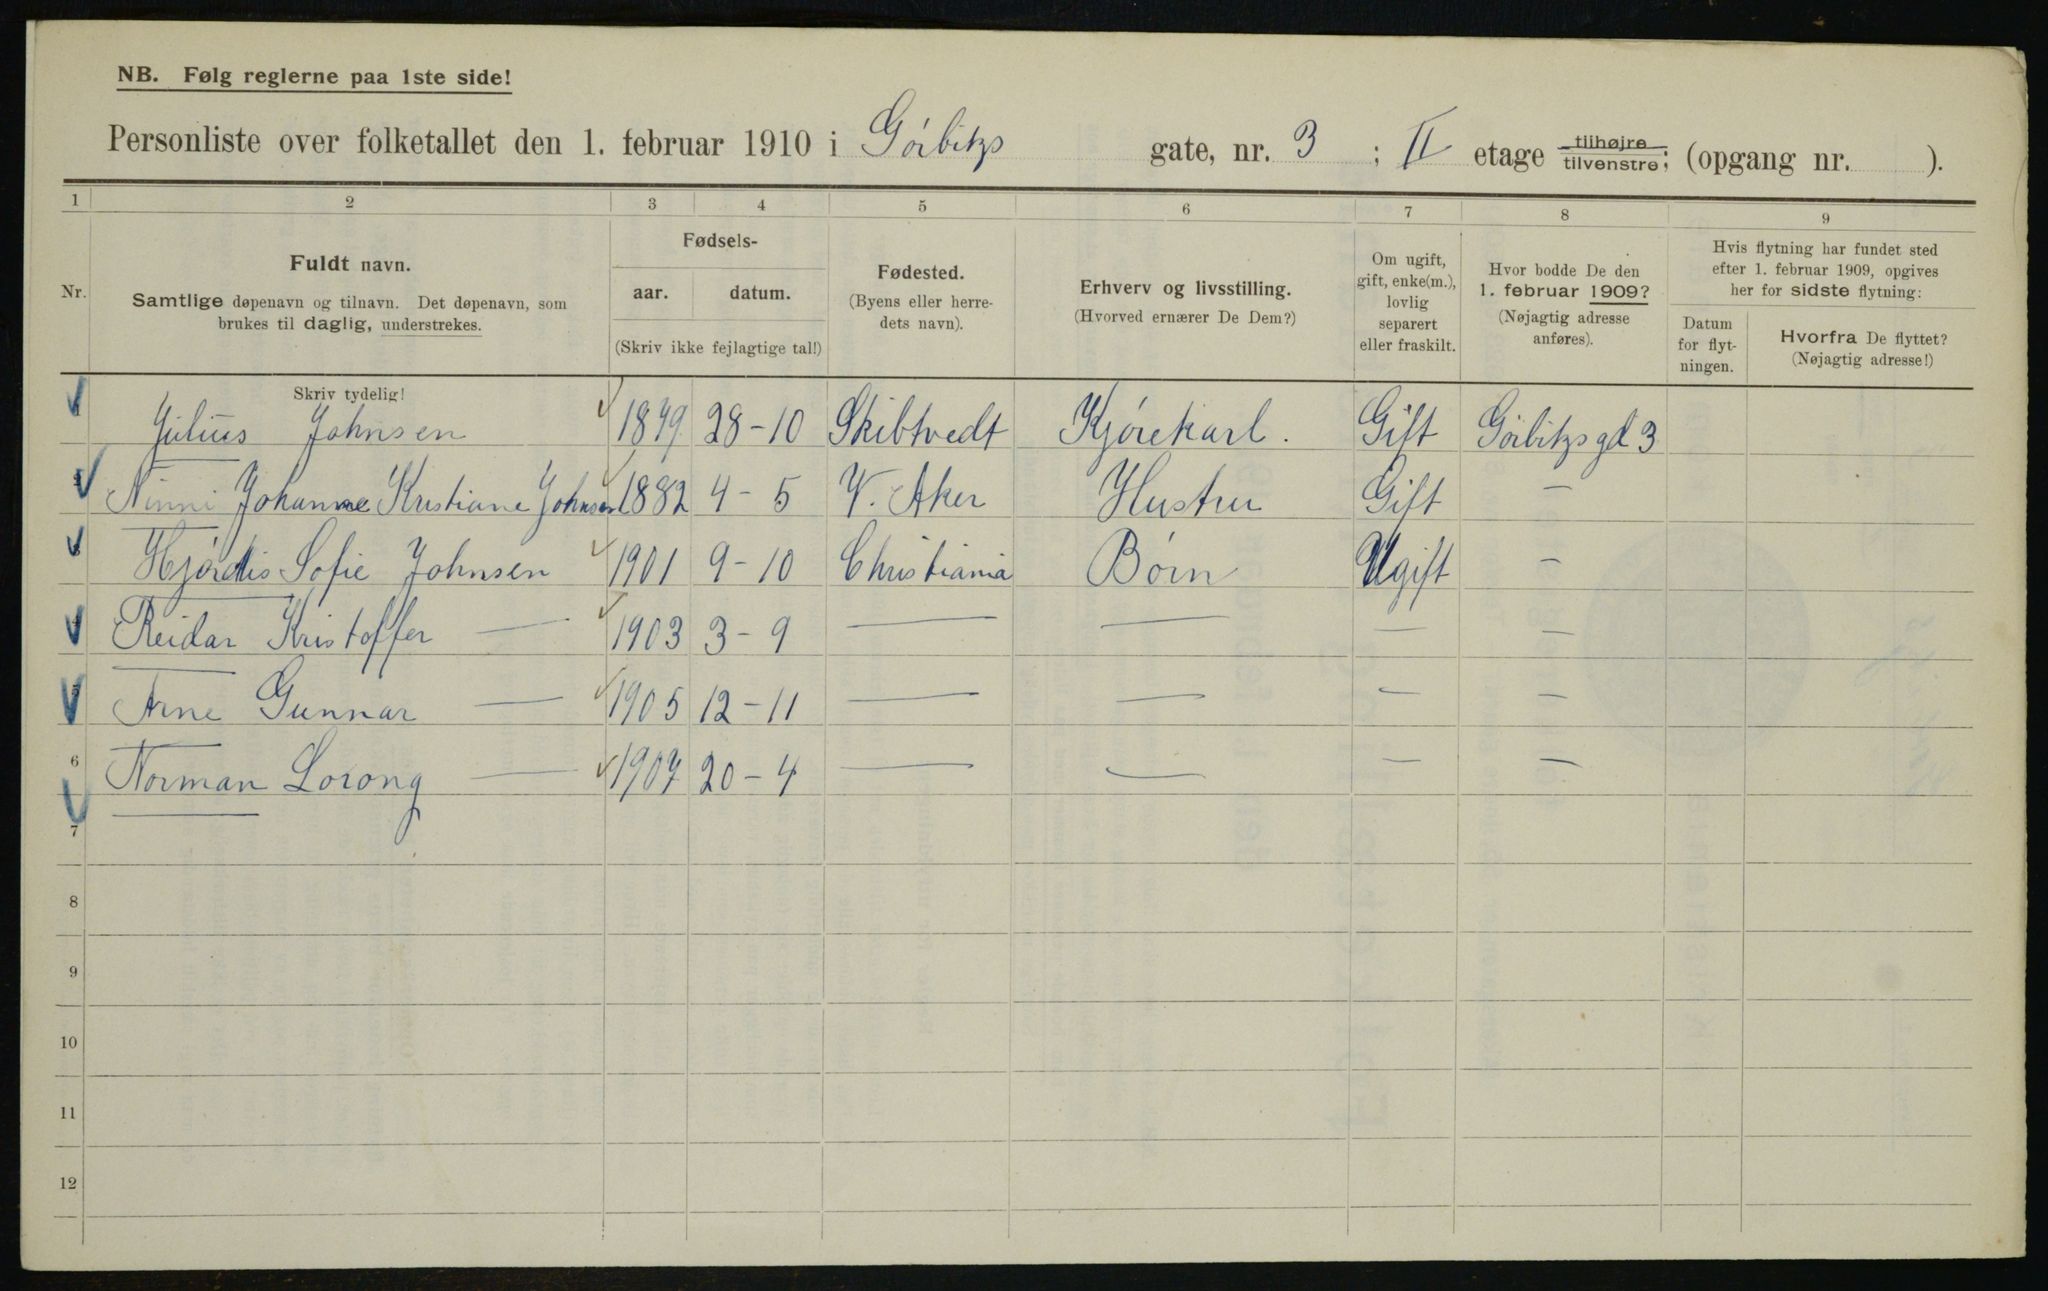 NB. Følg reglerne paa 1ste side!
Personliste over folketallet den 1. februar 1910 i Görbitzs gate, nr. 3 ; II etage tilhøjre tilvenstre; (opgang nr. ).
1 2 3 4 5 6 7 8 9
Nr.
Fuldt navn.
Samtlige døpenavn og tilnavn. Det døpenavn, som
brukes til daglig, understrekes.
Skriv tydelig!
Fødsels-
aar. datum.
(Skriv ikke fejlagtige tal!)
Fødested.
(Byens eller herre-
dets navn).
Erhverv og livsstilling.
(Hvorved ernærer De Dem?)
Om ugift,
gift, enke(m.),
lovlig
separert
eller fraskilt.
Hvor bodde De den
1. februar 1909?
(Nøjagtig adresse
anføres).
Hvis flytning har fundet sted
efter 1. februar 1909, opgives
her for sidste flytning:
Datum
for flyt-
ningen.
Hvorfra De flyttet?
(Nøjagtig adresse!)
Julius Johnsen 1879 28-10 Skibtvedt Kjørekarl. Gift Görbitzsgd 3
Ninni Johanne Kristiane Johnsen 1882 4-5 V. Aker Hustru Gift —
Hjørdis Sofie Johnsen 1901 9-10 Christiania Børn Ugift —
Reidar Kristoffer — 1903 3-9 — — — —
Arne Gunnar — 1905 12-11 — — — —
6 Norman Lorong — 1907 20-4 — — — —
7
8
9
10
11
12